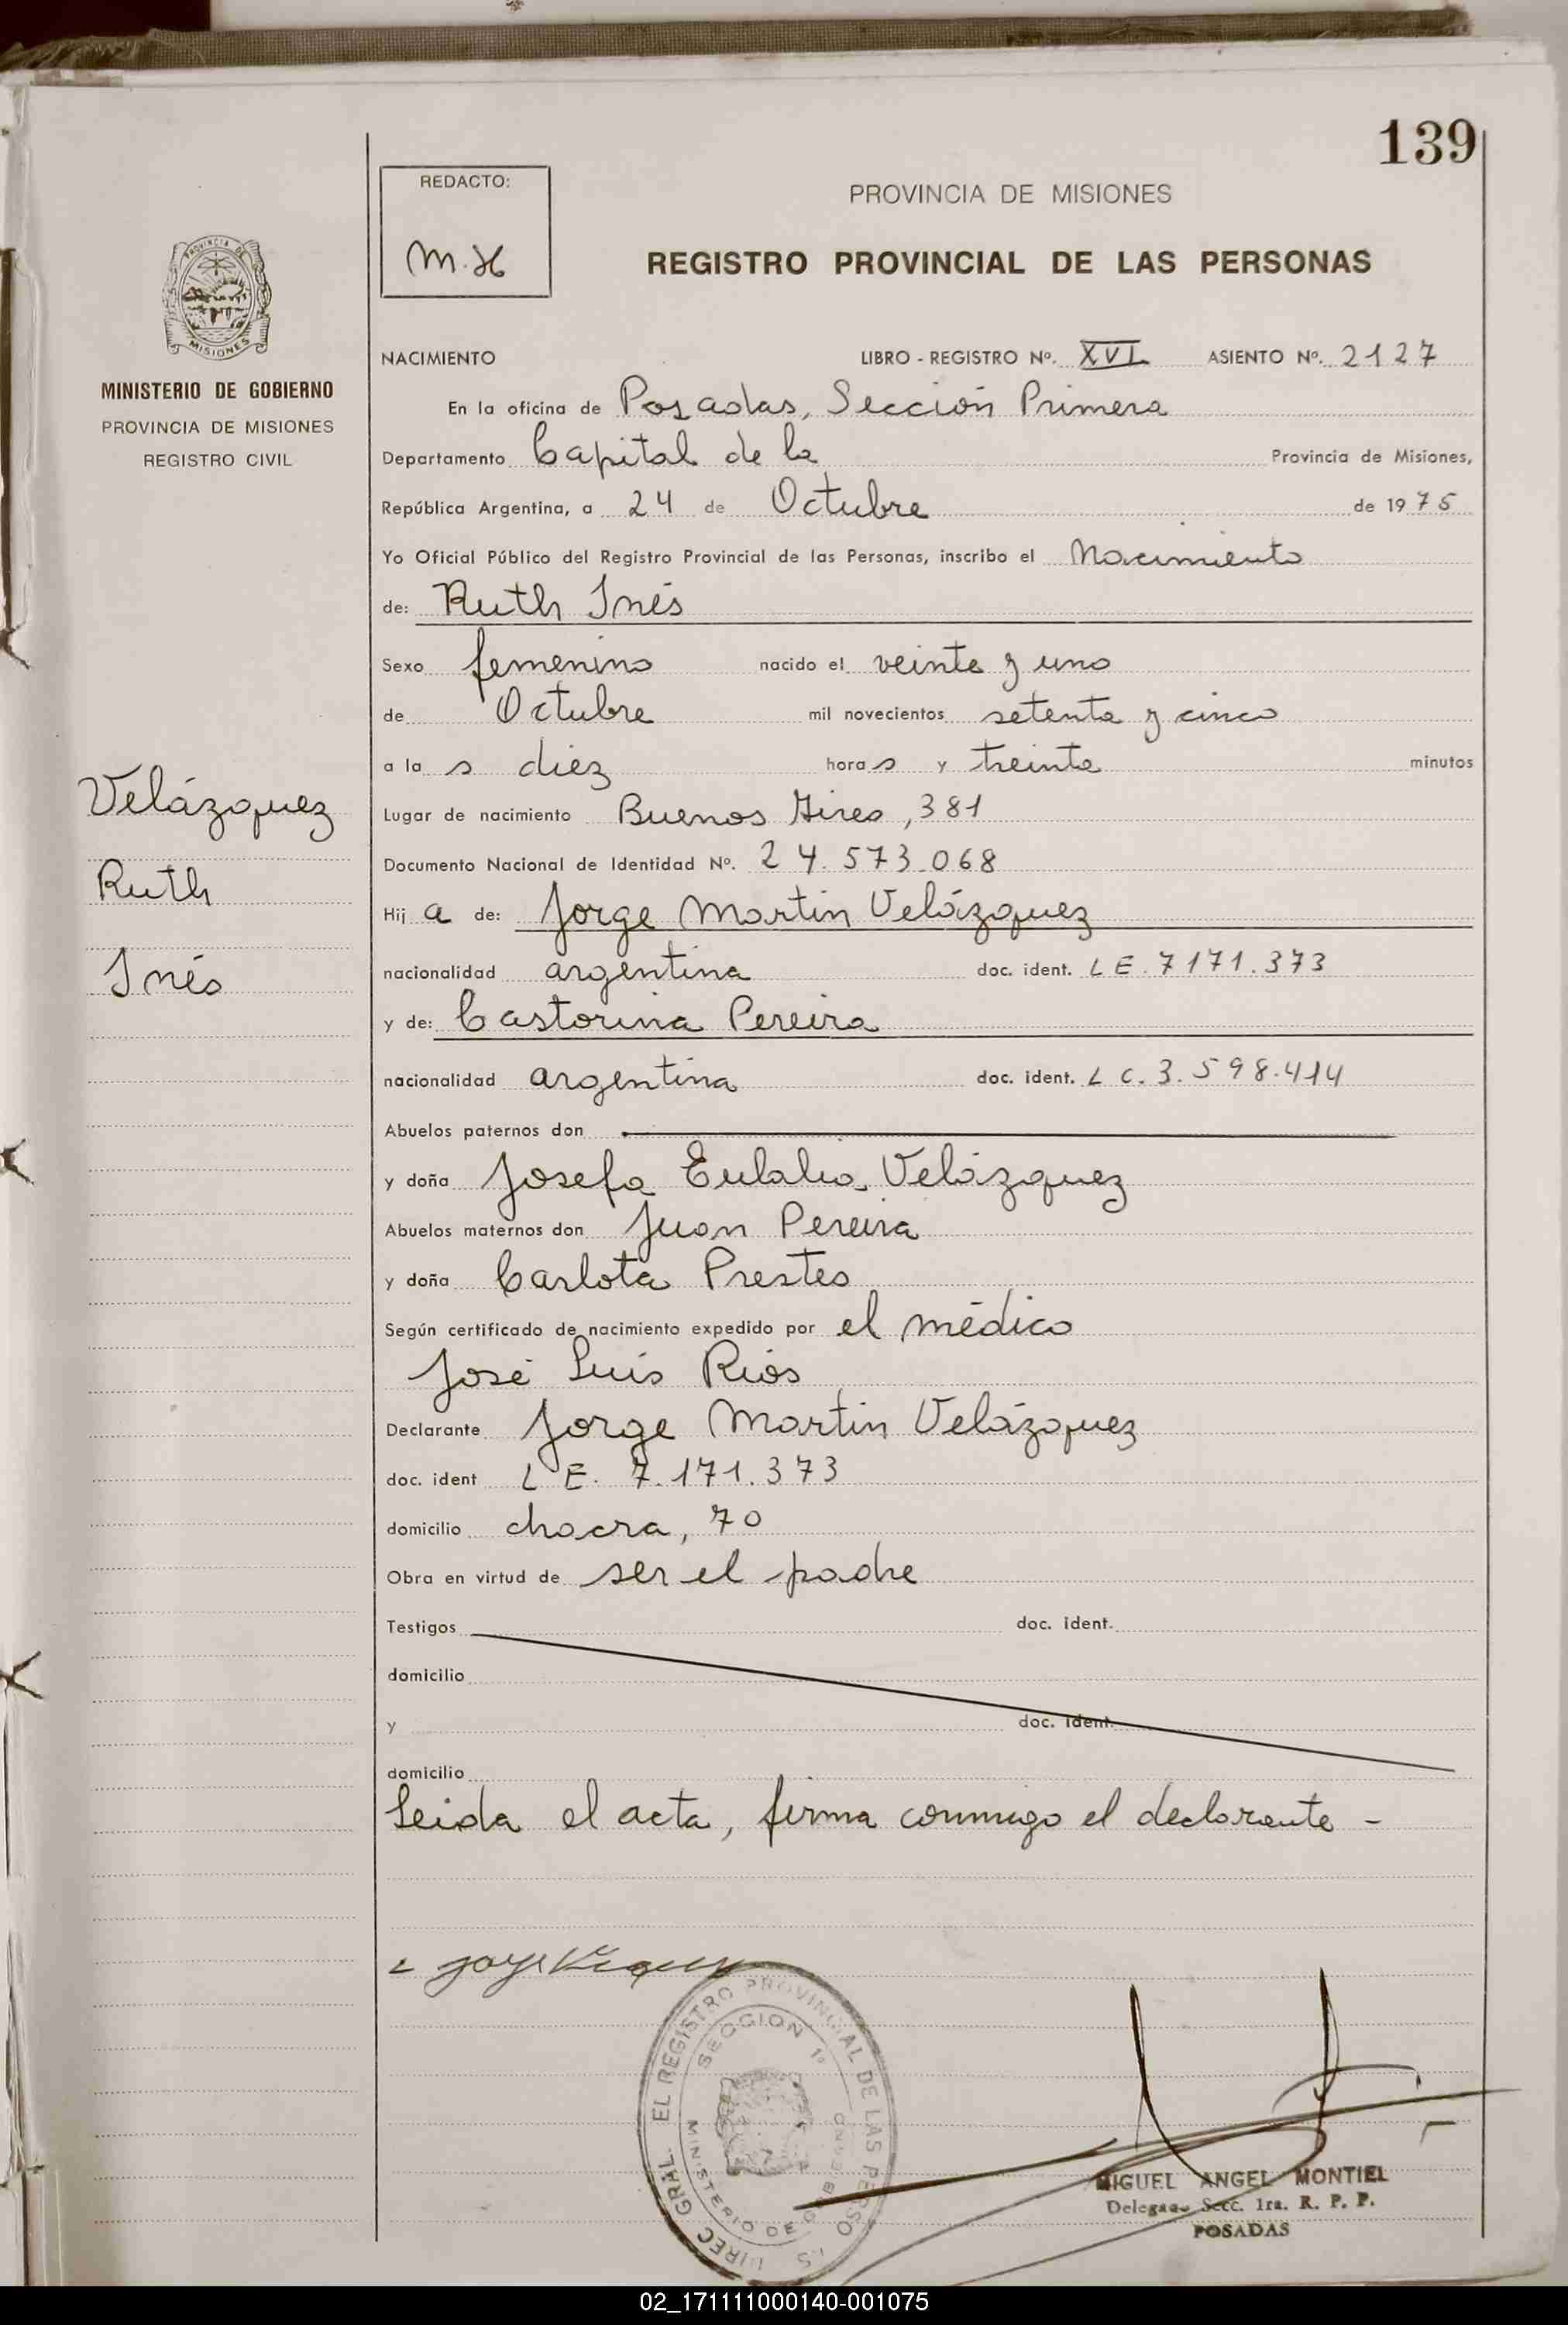 139
REDACTO:
M.H
PROVINCIA DE MISIONES
REGISTRO PROVINCIAL DE LAS PERSONAS
PROVINCIA DE
MISIONES
MINISTERIO DE GOBIERNO
PROVINCIA DE MISIONES
REGISTRO CIVIL
Velázquez
Ruth
Inés
NACIMIENTO LIBRO - REGISTRO Nº. XVI ASIENTO Nº. 2127
En la oficina de Posadas, Sección Primera
Departamento Capital de la Provincia de Misiones,
República Argentina, a 24 de Octubre de 1975
Yo Oficial Público del Registro Provincial de las Personas, inscribo el Nacimiento
de: Ruth Inés
Sexo femenino nacido el veinte y uno
de Octubre mil novecientos setenta y cinco
a la s diez hora s y treinta minutos
Lugar de nacimiento Buenos Aires, 381
Documento Nacional de Identidad Nº. 24.573.068
Hij a de: Jorge Martin Velázquez
nacionalidad argentina doc. ident. L E. 7171.373
y de: Castorina Pereira
nacionalidad argentina doc. ident. L C. 3.598.414
Abuelos paternos don
y doña Josefa Eulalia Velázquez
Abuelos maternos don Juan Pereira
y doña Carlota Prestes
Según certificado de nacimiento expedido por el médico
José Luis Rios
Declarante Jorge Martin Velázquez
doc. ident L E. 7.171.373
domicilio chacra, 70
Obra en virtud de ser el padre
Testigos doc. ident.
domicilio
y doc. ident.
domicilio
Leida el acta, firma conmigo el declarante -
DIREC GRAL. EL REGISTRO PROVINCIAL DE LAS PERSO
SECCION 1ª
MINISTERIO DE
MIGUEL ANGEL MONTIEL
Delegado Secc. 1ra. R. P. P.
POSADAS
02_171111000140-001075